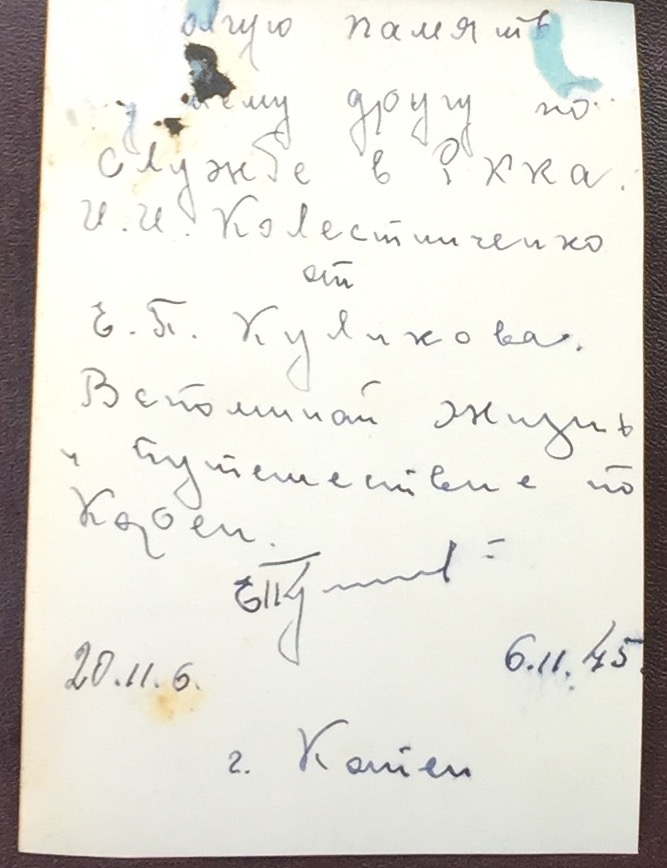 долгую память
другу по
службе в РККА.
И.И. Колестниченко
от
Е.П. Куликова.
Вспоминай жизнь
и путешествие по
Кореи.
20.11.6. 6.11.45
г.